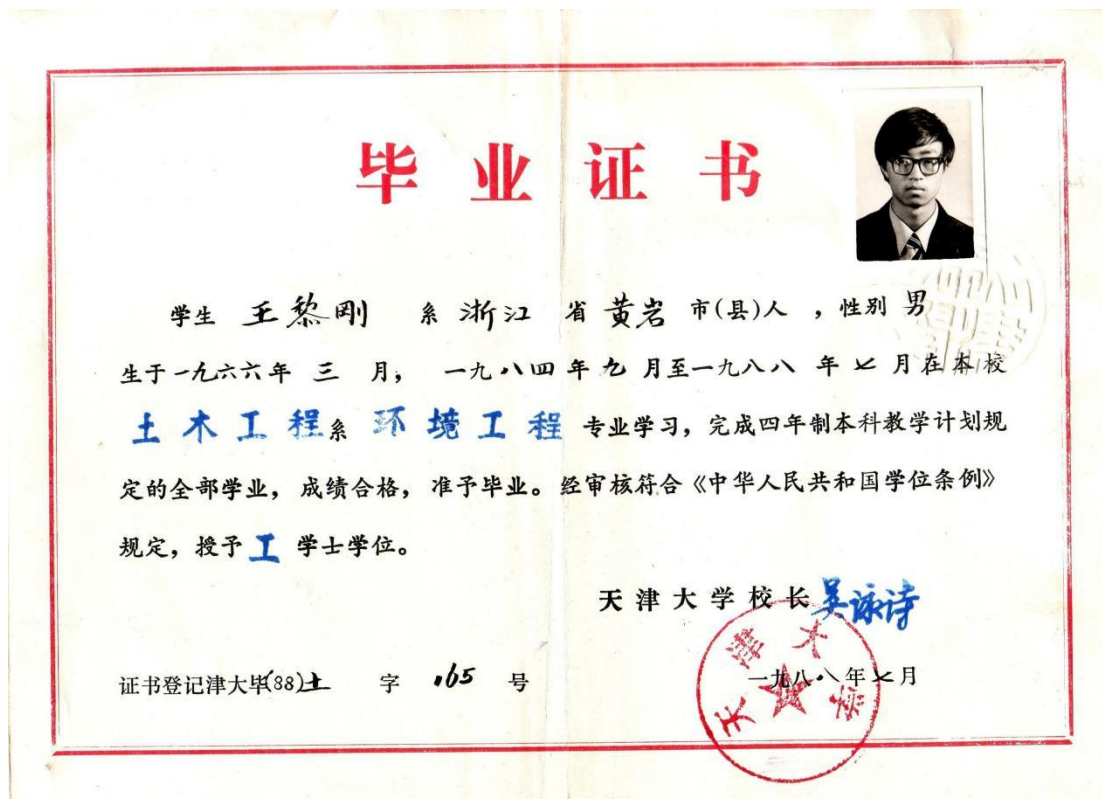 毕业证书
学生 王黎刚 系 浙江 省 黄岩 市(县)人 ，性别 男
生于一九六六年 三 月， 一九八四年九月至一九八八年七月在本校
土木工程系 环境工程 专业学习，完成四年制本科教学计划规
定的全部学业，成绩合格，准予毕业。经审核符合《中华人民共和国学位条例》
规定，授予 工 学士学位。
天津大学校长 吴咏诗
天津大学
证书登记津大毕(88)土 字 165 号
一九八八年七月